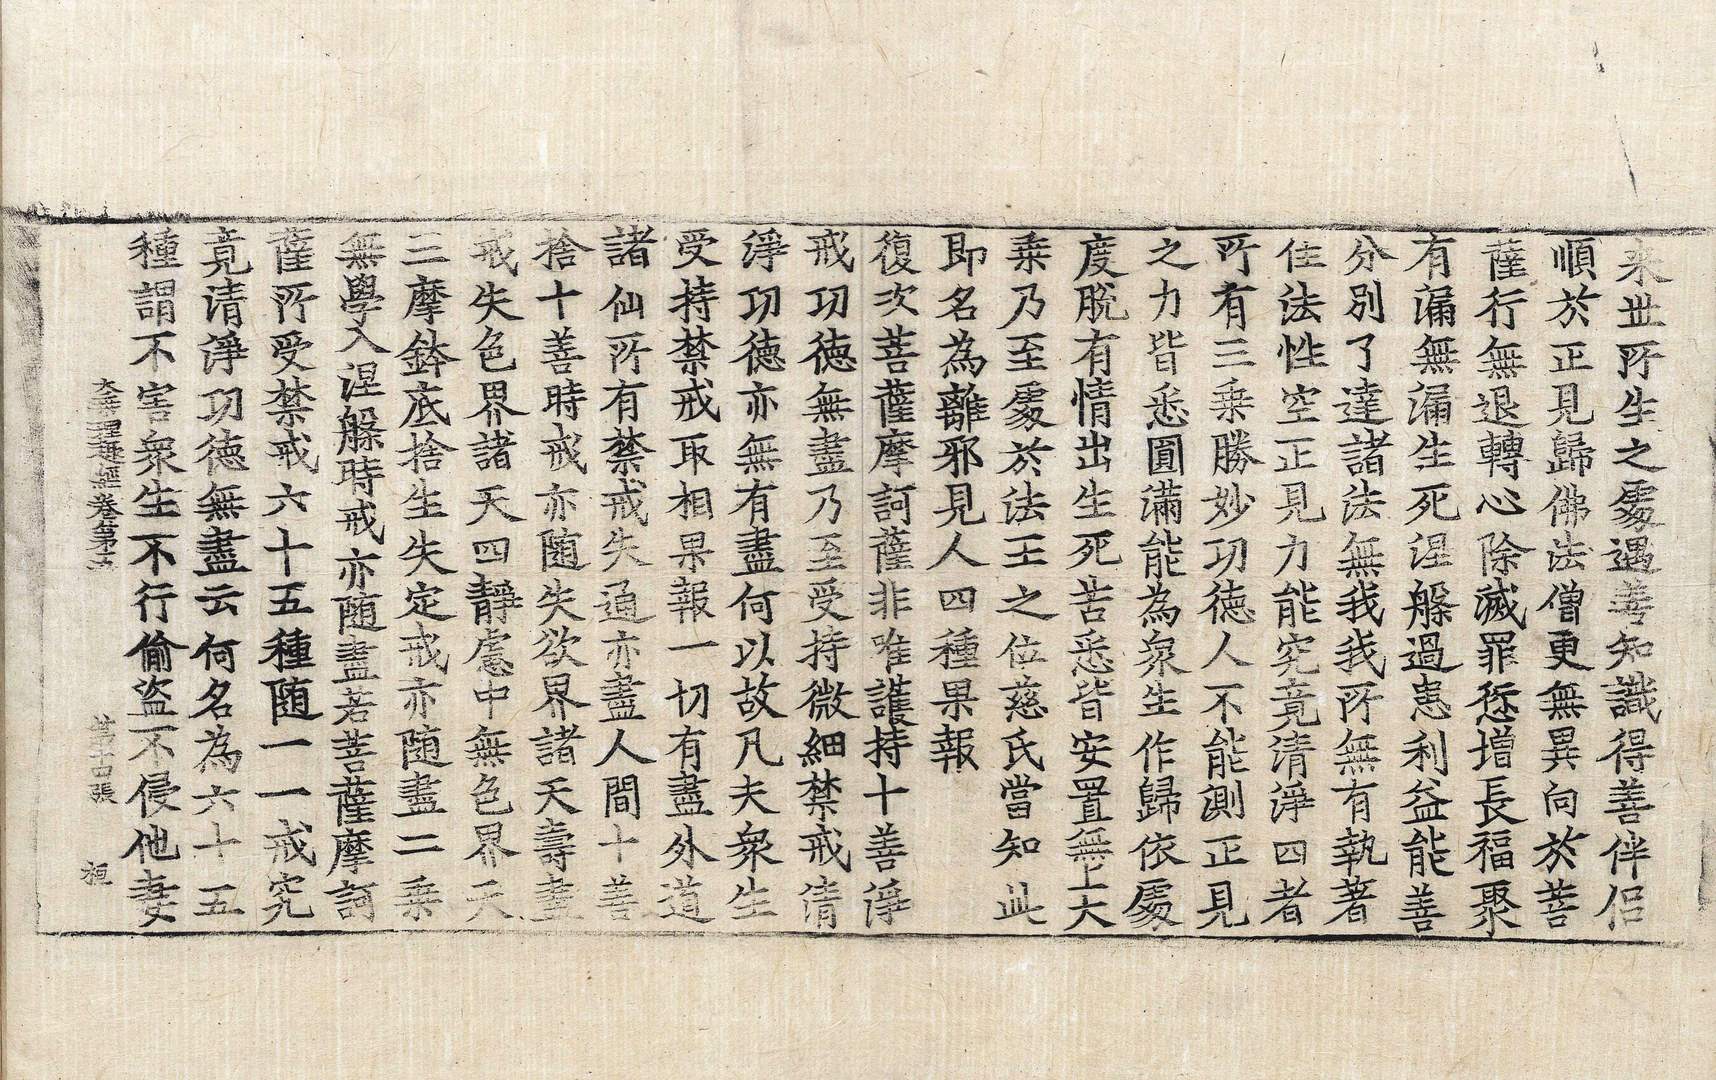 来世所生之處遇善知識得善伴侣
順於正見歸佛法僧更無異向於菩
薩行無退轉心除滅罪愆增長福聚
有漏無漏生死涅槃過患利益能善
分别了達諸法無我我所無有執著
住法性空正見力能究竟清淨四者
所有三乗勝妙功徳人不能測正見
之力皆悉圓滿能為衆生作歸依處
度脫有情出生死苦悉皆安置無上大
乗乃至處於法王之位慈氏當知此
即名為離邪見人四種果報
復次菩薩摩訶薩非唯護持十善淨
戒功徳無盡乃至受持微細禁戒清
淨功徳亦無有盡何以故凡夫衆生
受持禁戒取相果報一切有盡外道
諸仙所有禁戒失通亦盡人間十善
捨十善時戒亦随失欲界諸天壽盡
戒失色界諸天四靜慮中無色界天
三摩鉢底捨生失定戒亦随盡二乗
無學入涅槃時戒亦随盡若菩薩摩訶
薩所受禁戒六十五種随一一戒究
竟清淨功徳無盡云何名為六十五
種謂不害衆生不行偷盜不侵他妻
大乗理趣經卷第五 第十四張 桓